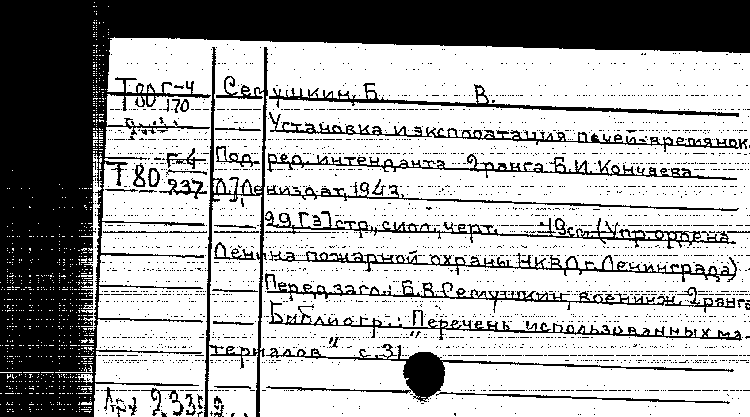 Т80 Г-4/170 Семушкин, Б. В.
Установка и эксплоатация печей-времянок.
Т80 Г-4/237 Под ред. интенданта 2 ранга Б.И. Кончаева.
[Л.], Лениздат, 1942.
29, [3] стр., с илл., черт. 19 см. (Упр. ордена
Ленина пожарной охраны НКВД г. Ленинграда)
Перед загл.: Б.В. Семушкин, военинж. 2 ранга
Библиогр.: "Перечень использованных ма-
териалов" с. 31